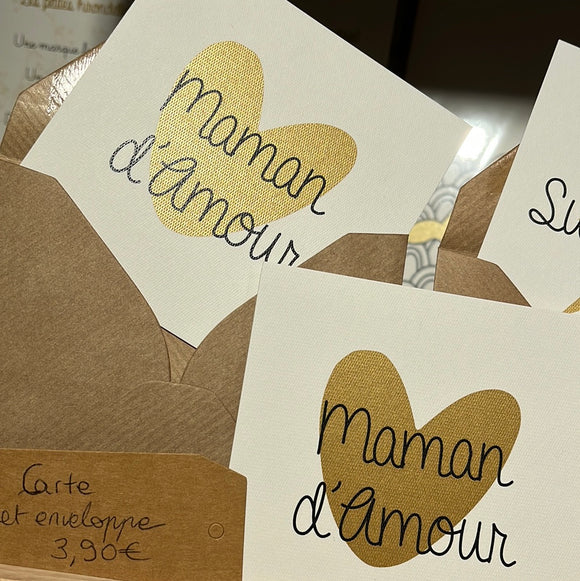 Les petites
Une
Maman
d'Amour
Su
Maman
d'Amour
Carte
et enveloppe
3,90€